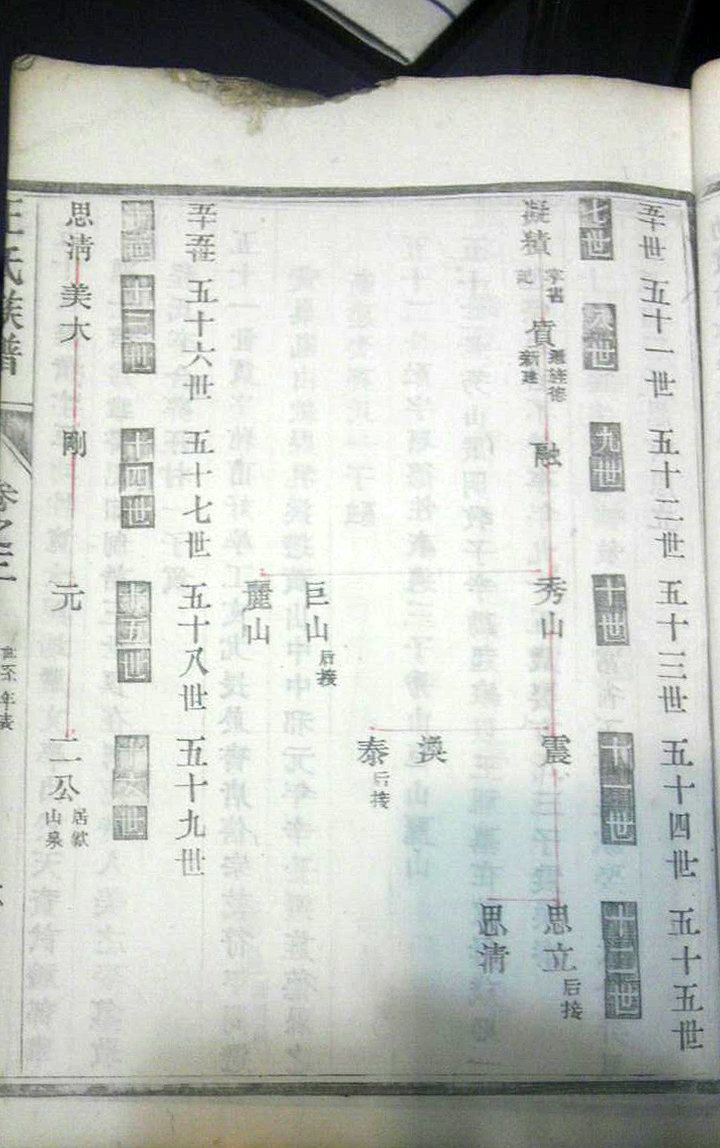 五十世 五十一世 五十二世 五十三世 五十四世 五十五世
七世 八世 九世 十世 十一世 十二世
凝積 字書記 質 遷旌德新建 融 秀山 震 思立 后接
思清
渙
泰 后接
巨山 后接
麗山
五十五世 五十六世 五十七世 五十八世 五十九世
十二世 十三世 十四世 十五世 十六世
思淸 美大 剛 元 二公 居歙山泉
王氏族譜 卷之三